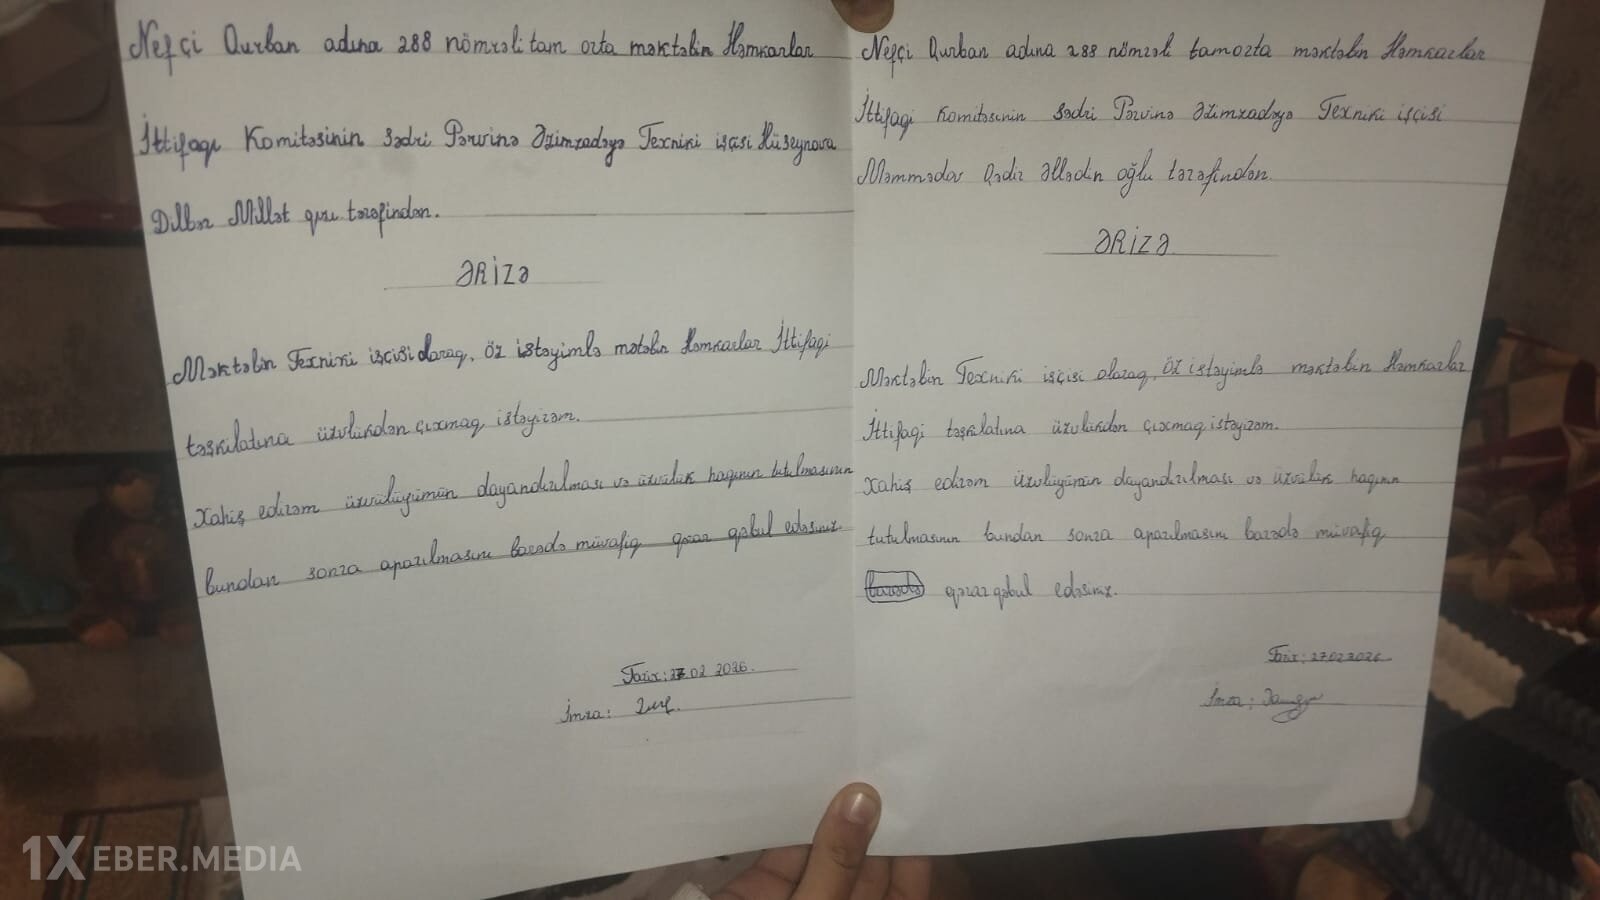 Nefçi Qurban adına 288 nömrəli tam orta məktəbin Həmkarlar
İttifaqı Komitəsinin sədri Pərvinə Əzimzadəyə Texniki işçisi Hüseynova
Dilbər Millət qızı tərəfindən.
ƏRİZƏ
Məktəbin Texniki işçisi olaraq, öz istəyimlə mətəbin Həmkarlar İttifaqi
təşkilatına üzvlükdən çıxmaq istəyirəm.
Xahiş edirəm üzvülüyümün dayandırılması və üzvlük haqının tutulmasının
bundan sonra aparılmasını barədə müvafiq qərar qəbul edəsiniz
Tarix: 27.02 2026.
İmza:
Nefçi Qurban adına 288 nömrəli tam orta məktəbin Həmkarlar
İttifaqi Komitəsinin sədri Pərvinə Əzimzadəyə Texniki işçisi
Məmmədov Qədir Əllədin oğlu tərəfindən.
ƏRİZƏ
Məktəbin Texniki işçisi olaraq, öz istəyimlə məktəbin Həmkarlar
İttifaqi təşkilatına üzvlükdən çıxmaq istəyirəm.
Xahiş edirəm üzvlüyümün dayandırılması və üzvlük haqının
tutulmasının bundan sonra aparılmasını barədə müvafiq
barədə qərar qəbul edəsiniz.
Tarix: 27.02 2026.
İmza:
1XEBER.MEDIA